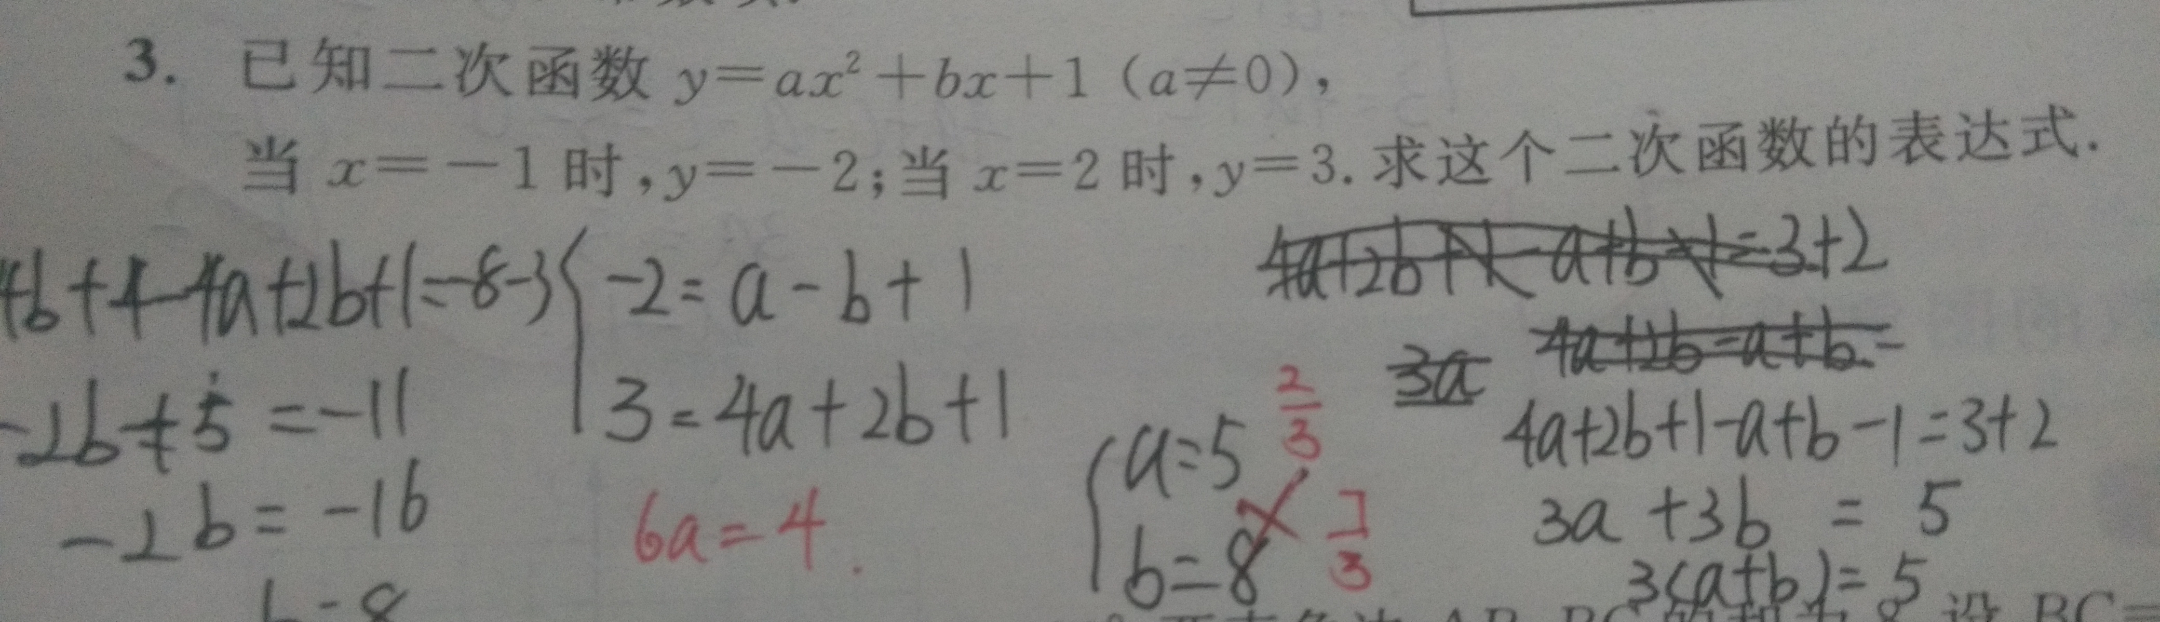 3. 已知二次函数 y=ax²+bx+1 (a≠0),
当 x=-1 时,y=-2;当 x=2 时,y=3. 求这个二次函数的表达式.
4b+4-4a+2b+1=-8-3
-2b+5=-11
-2b=-16
b=8
-2=a-b+1
3=4a+2b+1
6a=4.
a=5
b=8
2/3
7/3
4a+2b+1-a+b-1=3+2
3a
4a+2b-a+b=
4a+2b+1-a+b-1=3+2
3a+3b=5
3(a+b)=5
设 BC=